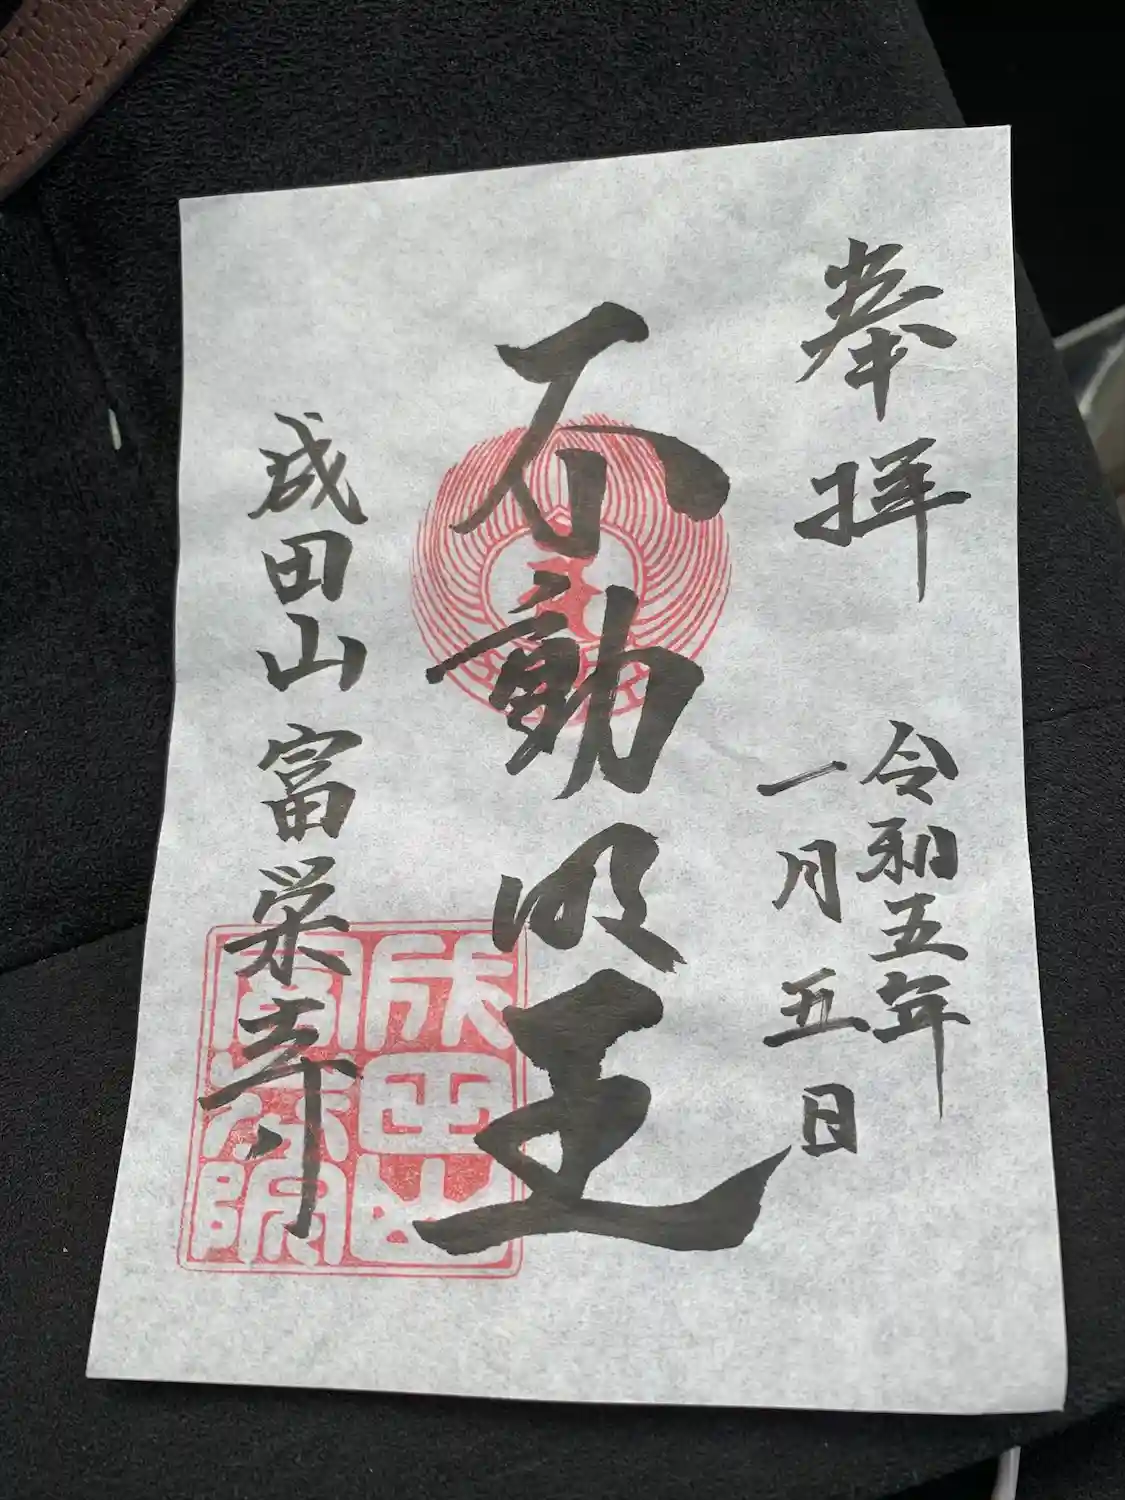 奉拝
令和五年
一月五日
不動明王
成田山 富栄寺
成田山
富栄院